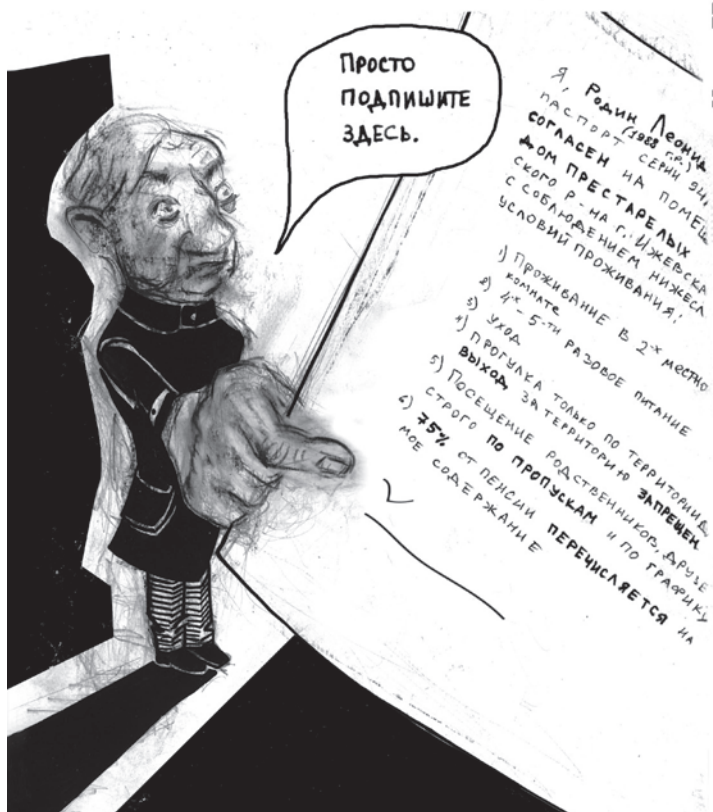 ПРОСТО
ПОДПИШИТЕ
ЗДЕСЬ.
Я, РОДИН ЛЕОНИД
(1988 Г.Р.)
ПАСПОРТ СЕРИИ 94,
СОГЛАСЕН НА ПОМЕЩ
ДОМ ПРЕСТАРЕЛЫХ
СКОГО Р-НА Г. ИЖЕВСКА
С СОБЛЮДЕНИЕМ НИЖЕСЛ
УСЛОВИЙ ПРОЖИВАНИЯ:
1) ПРОЖИВАНИЕ В 2-Х МЕСТНО
КОМНАТЕ
2) 4-Х - 5-ТИ РАЗОВОЕ ПИТАНИЕ
3) УХОД
4) ПРОГУЛКА ТОЛЬКО ПО ТЕРРИТОРИИ
ВЫХОД ЗА ТЕРРИТОРИЮ ЗАПРЕЩЕН
5) ПОСЕЩЕНИЕ РОДСТВЕННИКОВ, ДРУЗЕ
СТРОГО ПО ПРОПУСКАМ И ПО ГРАФИКУ
6) 75% ОТ ПЕНСИИ ПЕРЕЧИСЛЯЕТСЯ НА
МОЕ СОДЕРЖАНИЕ